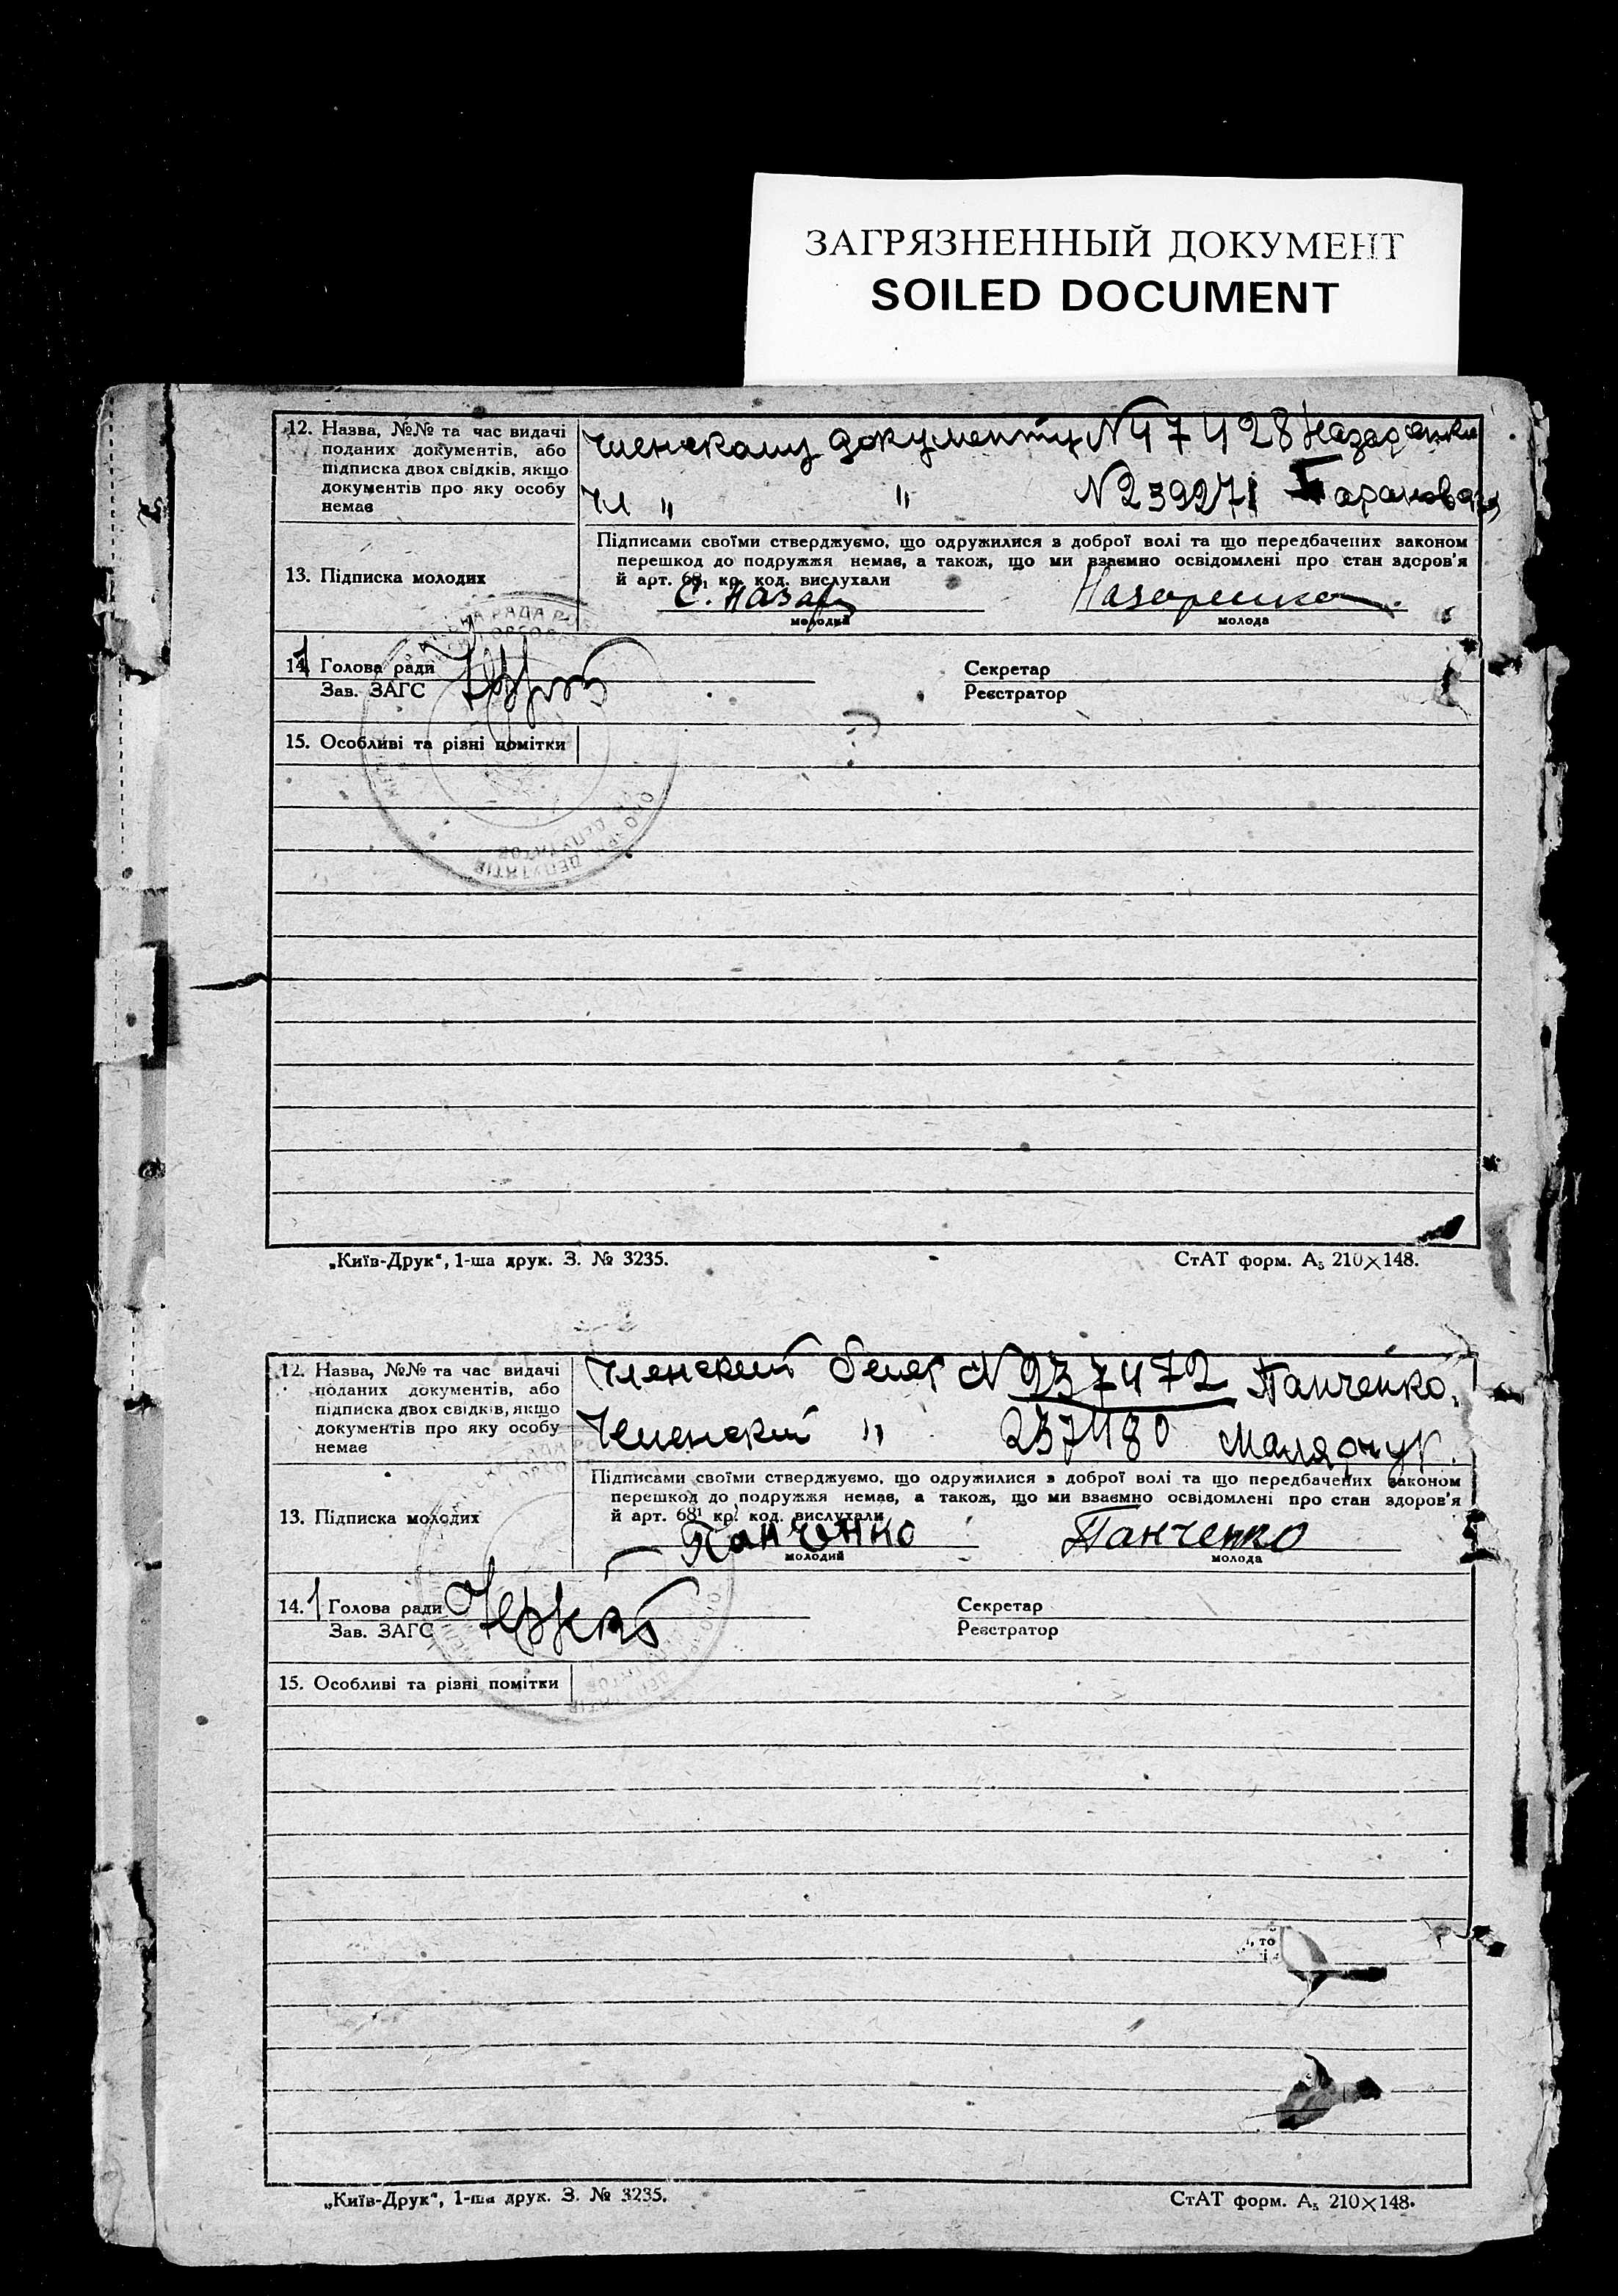 ЗАГРЯЗНЕННЫЙ ДОКУМЕНТ
SOILED DOCUMENT
12. Назва, №№ та час видачі
поданих документів, або
підписка двох свідків, якщо
документів про яку особу
немає
Членскому документу N 47428 Назаренки
Чл " " N 239271 Баранова
13. Підписка молодих
Підписами своїми стверджуємо, що одружилися з доброї волі та що передбачених законом
перешкод до подружжя немає, а також, що ми взаємно освідомлені про стан здоров'я
й арт. 68¹ кр. код. вислухали
С. Назар Назаренко
молодий молода
14. Голова ради
Зав. ЗАГС
Секретар
Реєстратор
15. Особливі та різні помітки
„Київ-Друк“, 1-ша друк. З. № 3235.
СтАТ форм. А₅ 210×148.
12. Назва, №№ та час видачі
поданих документів, або
підписка двох свідків, якщо
документів про яку особу
немає
Членский билет N 237472 Панченко.
Членский " 237480 Малярчук.
13. Підписка молодих
Підписами своїми стверджуємо, що одружилися з доброї волі та що передбачених законом
перешкод до подружжя немає, а також, що ми взаємно освідомлені про стан здоров'я
й арт. 68¹ кр. код. вислухали
Панченко Панченко
молодий молода
14. Голова ради
Зав. ЗАГС
Секретар
Реєстратор
15. Особливі та різні помітки
, то
„Київ-Друк“, 1-ша друк. З. № 3235.
СтАТ форм. А₅ 210×148.